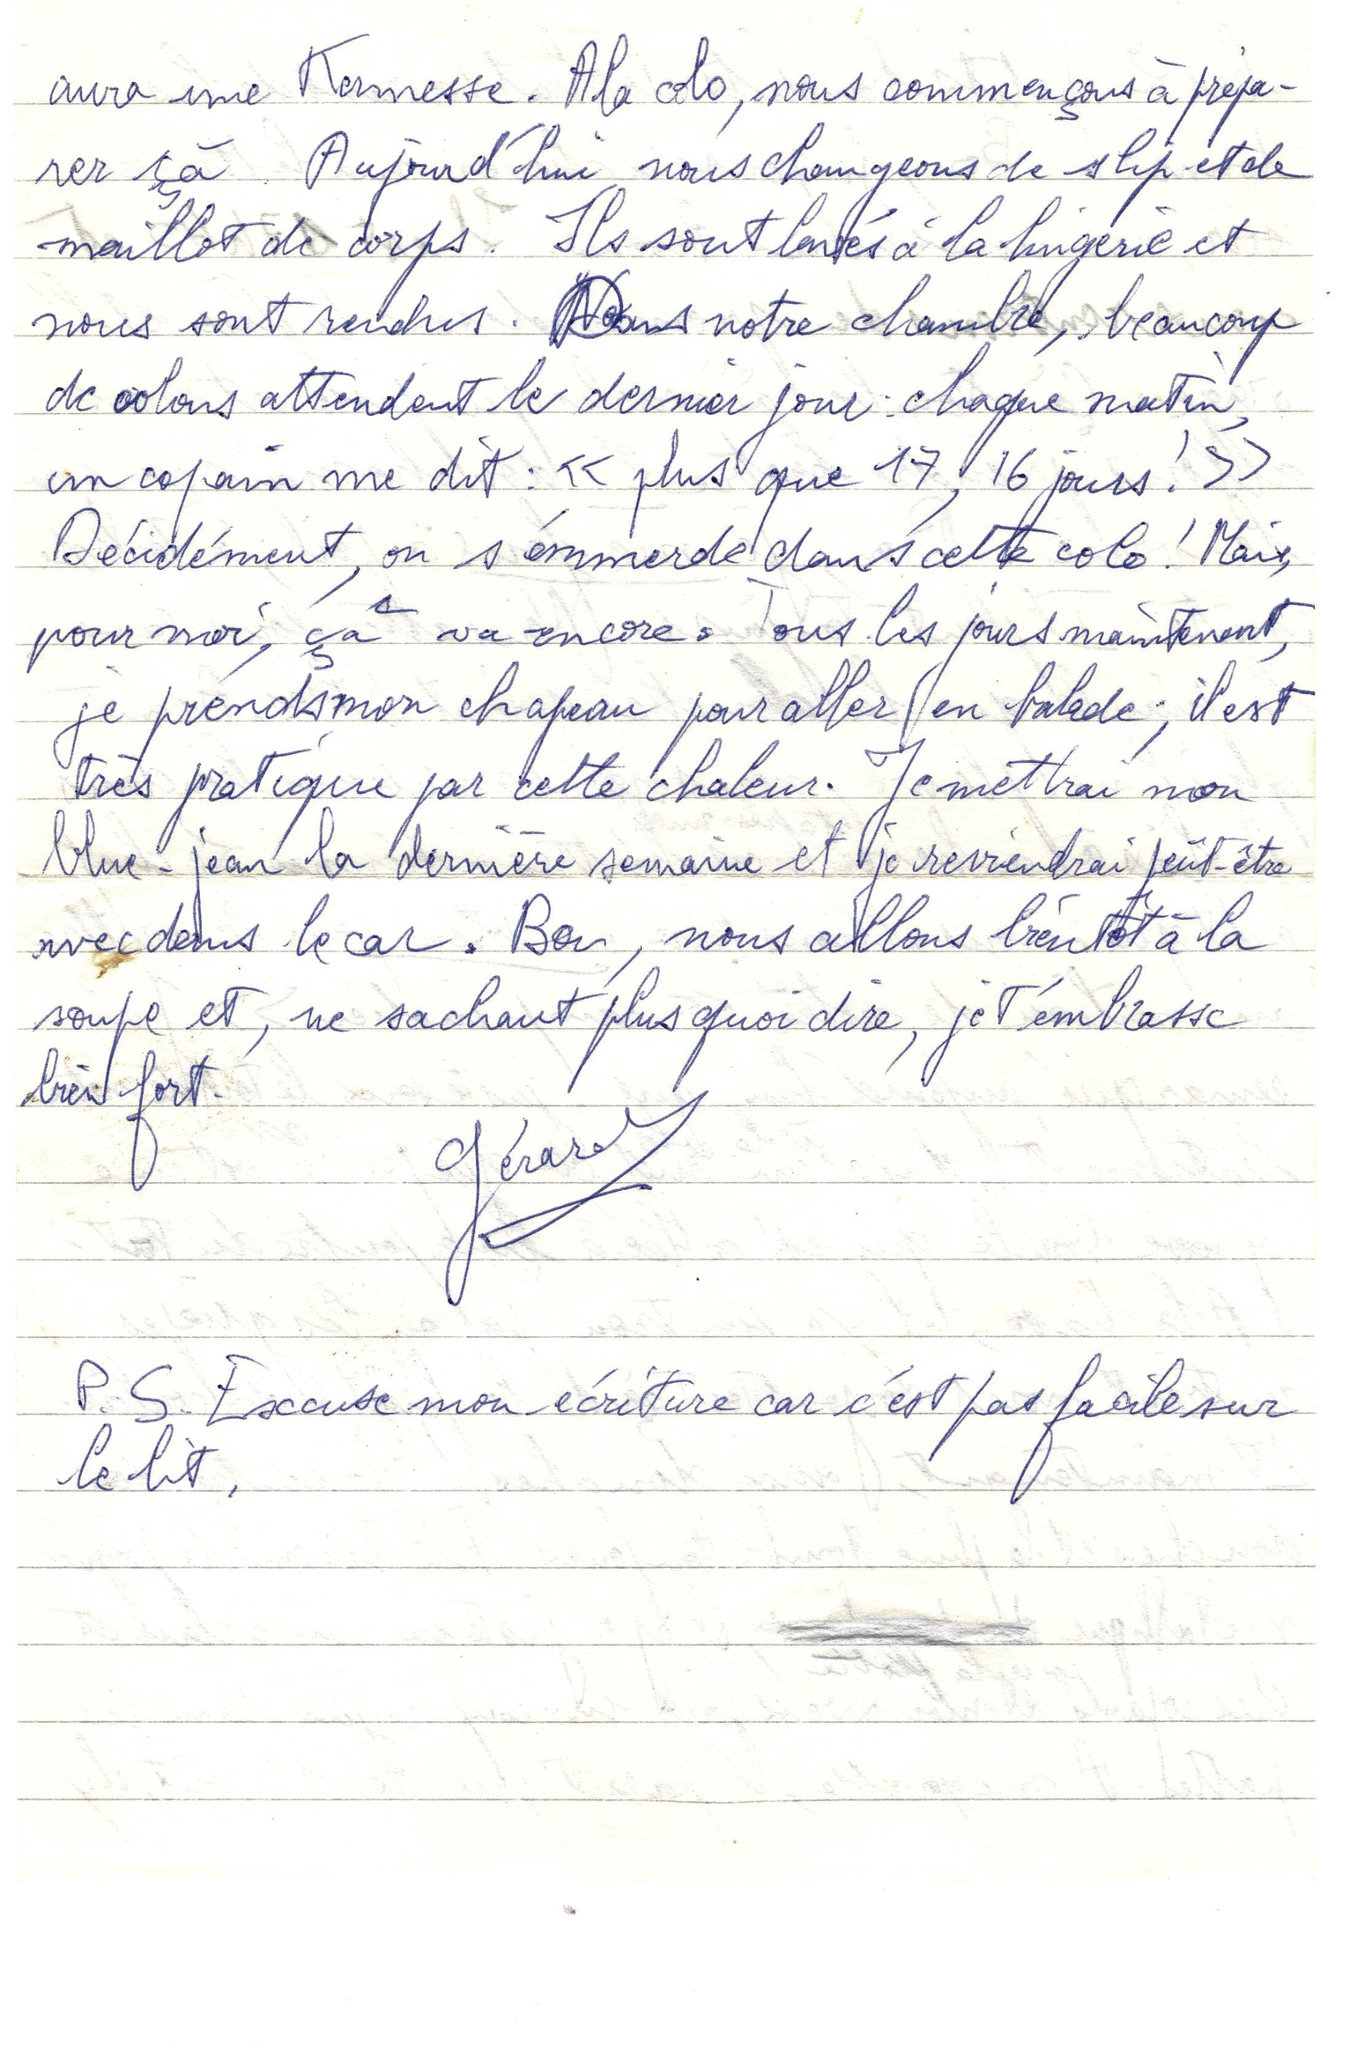 aura une Kermesse. A la colo, nous commençons à prépa-
rer çà. Aujourd'hui nous changeons de slip et de
maillot de corps. Ils sont lavés à la lingerie et
nous sont rendus. Dans notre chambre, beaucoup
de colons attendent le dernier jour : chaque matin,
un copain me dit : << plus que 17, 16 jours ! >>
Décidément, on s'emmerde dans cette colo ! Mais,
pour moi, çà va encore. Tous les jours maintenant,
je prends mon chapeau pour aller en balade ; il est
très pratique par cette chaleur. Je mettrai mon
blue-jean la dernière semaine et je reviendrai peut-être
avec dans le car. Bon, nous allons bientôt à la
soupe et, ne sachant plus quoi dire, je t'embrasse
bien fort.
Gérard
P.S. Excuse mon écriture car c'est pas facile sur
le lit.